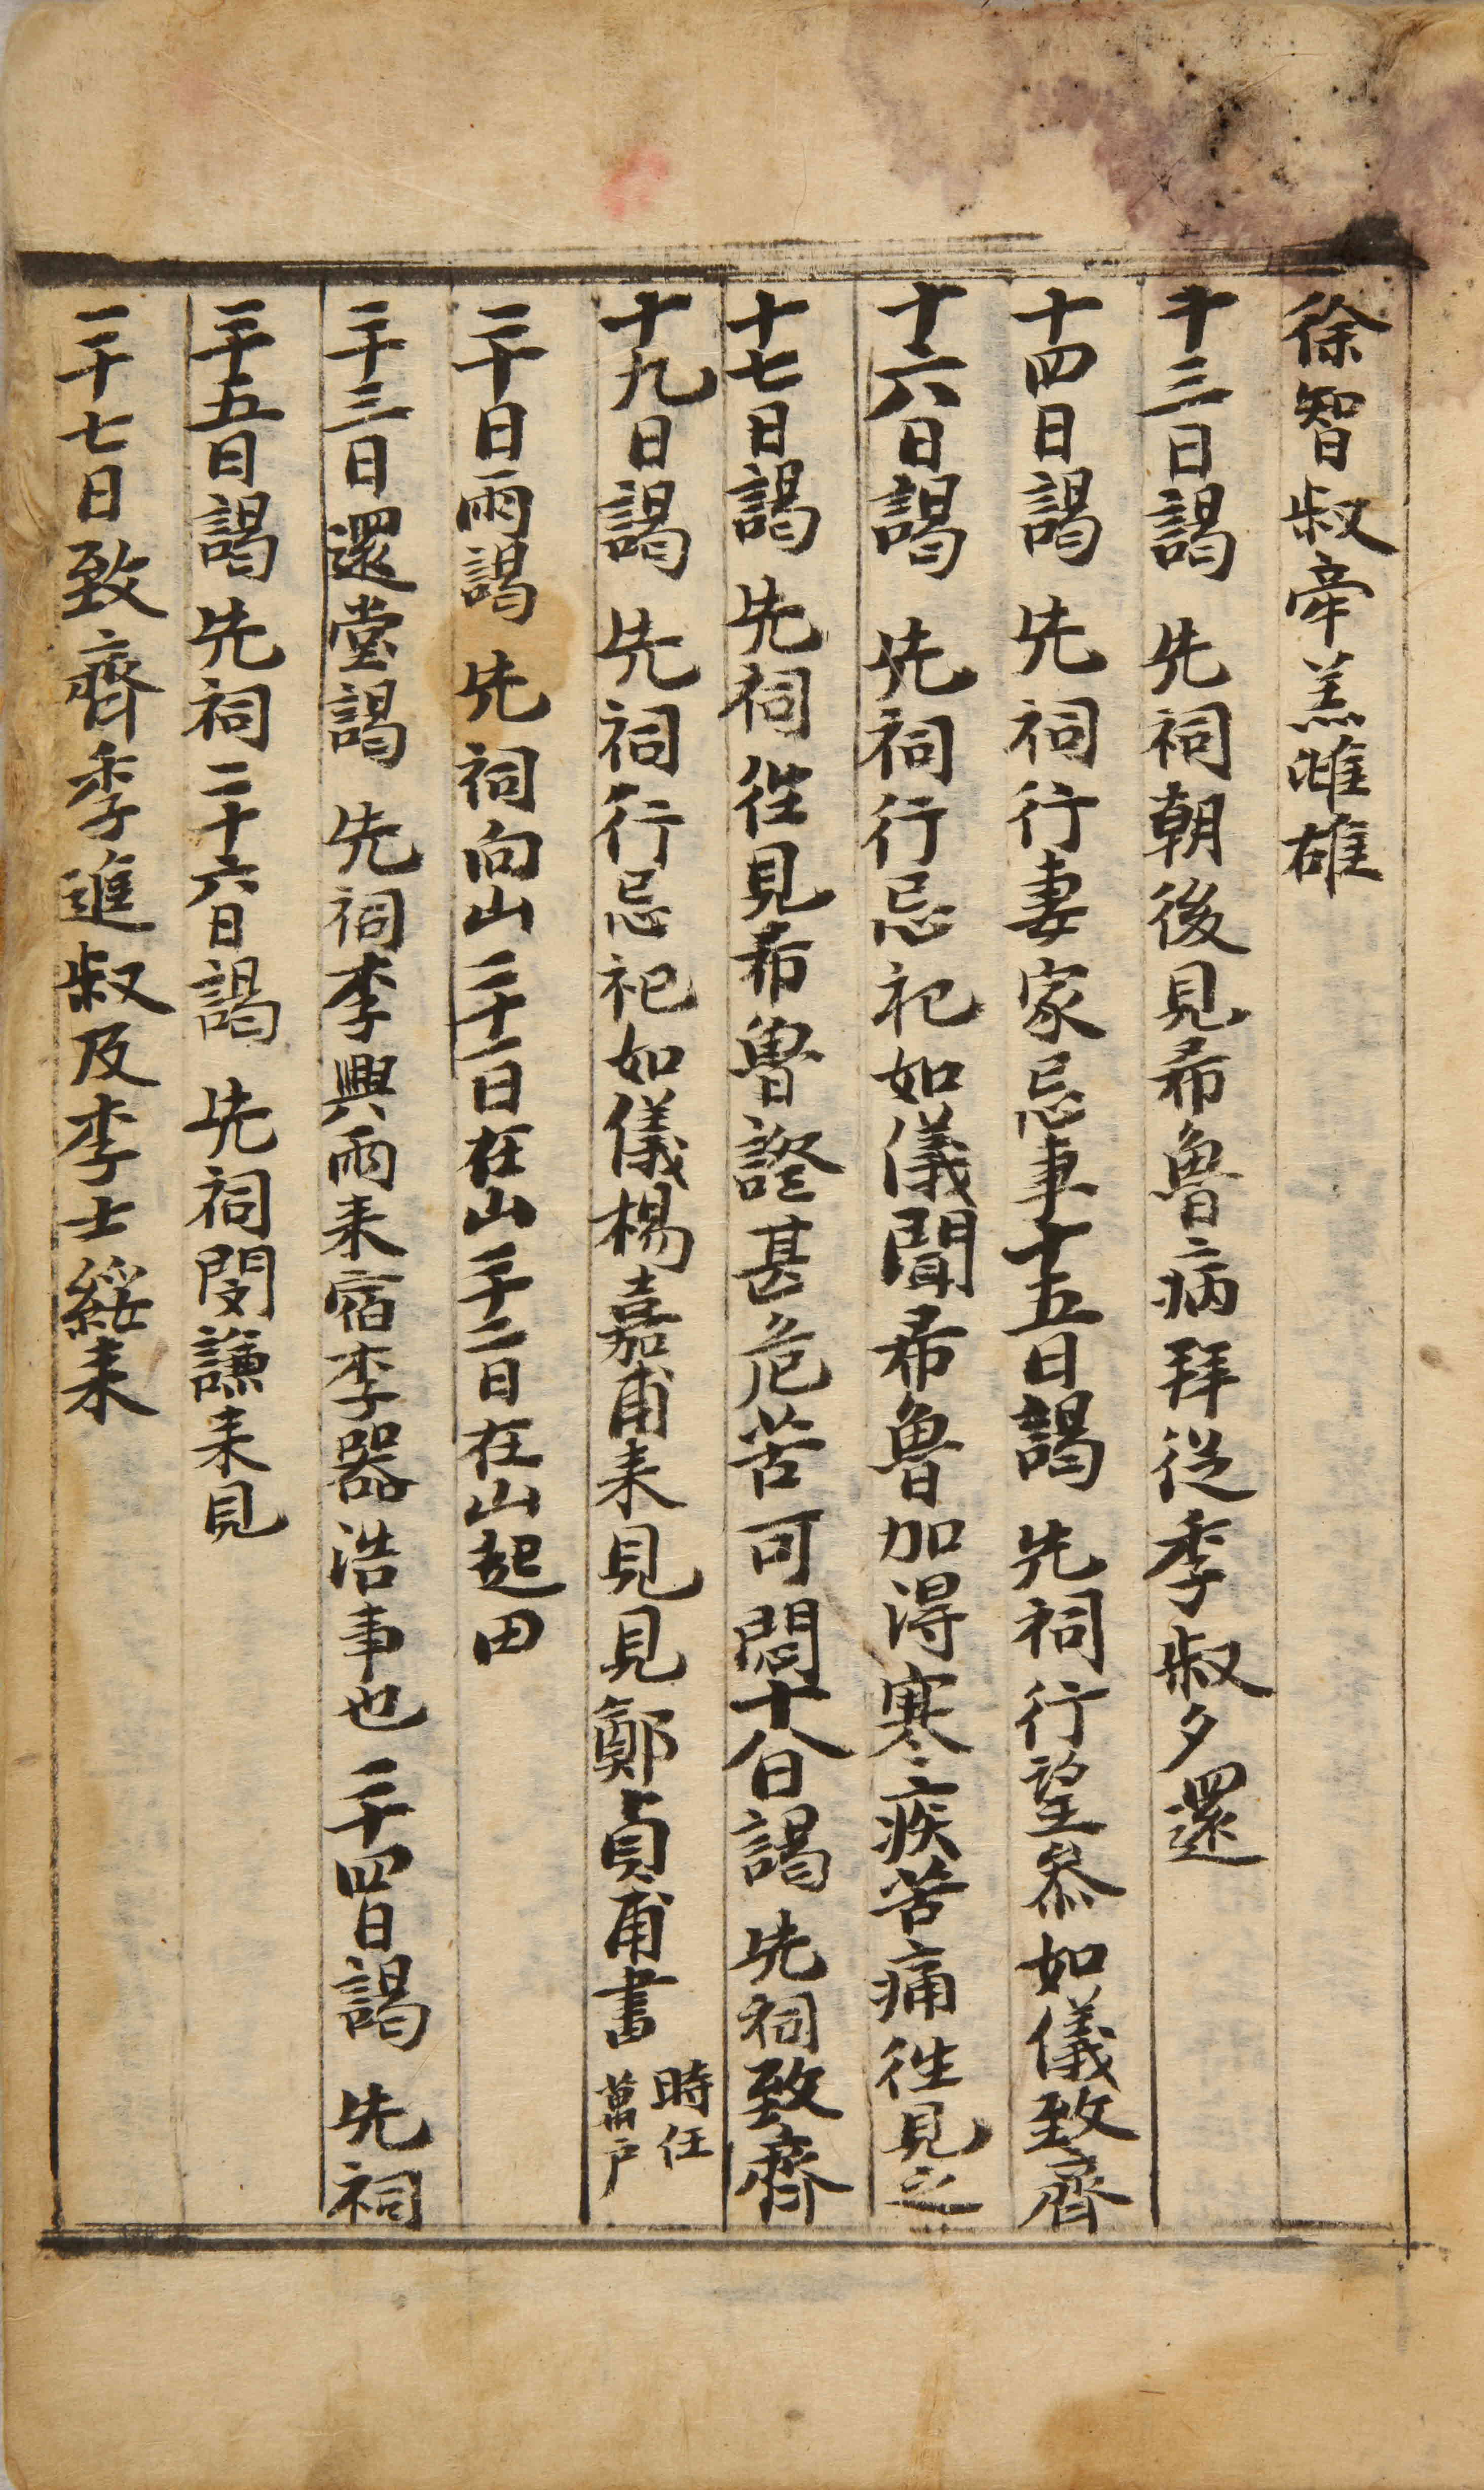 徐智叔牽羔雌雄
十三日謁 先祠朝後見希魯病拜從季叔夕還
十四日謁 先祠行妻家忌事十五日謁 先祠行望叅如儀致齊
十六日謁 先祠行忌祀如儀聞希魯加得寒疾苦痛徃見之
十七日謁 先祠徃見希魯證甚危苦可悶十八日謁 先祠致齊
十九日謁 先祠行忌祀如儀楊嘉甫来見見鄭貞甫書 時任萬户
二十日雨謁 先祠向山二十一日在山二十二日在山起田
二十三日還堂謁 先祠李興雨来宿李器浩事也二十四日謁 先祠
二十五日謁 先祠二十六日謁 先祠閔謙来見
二十七日致齊季進叔及李士綏来